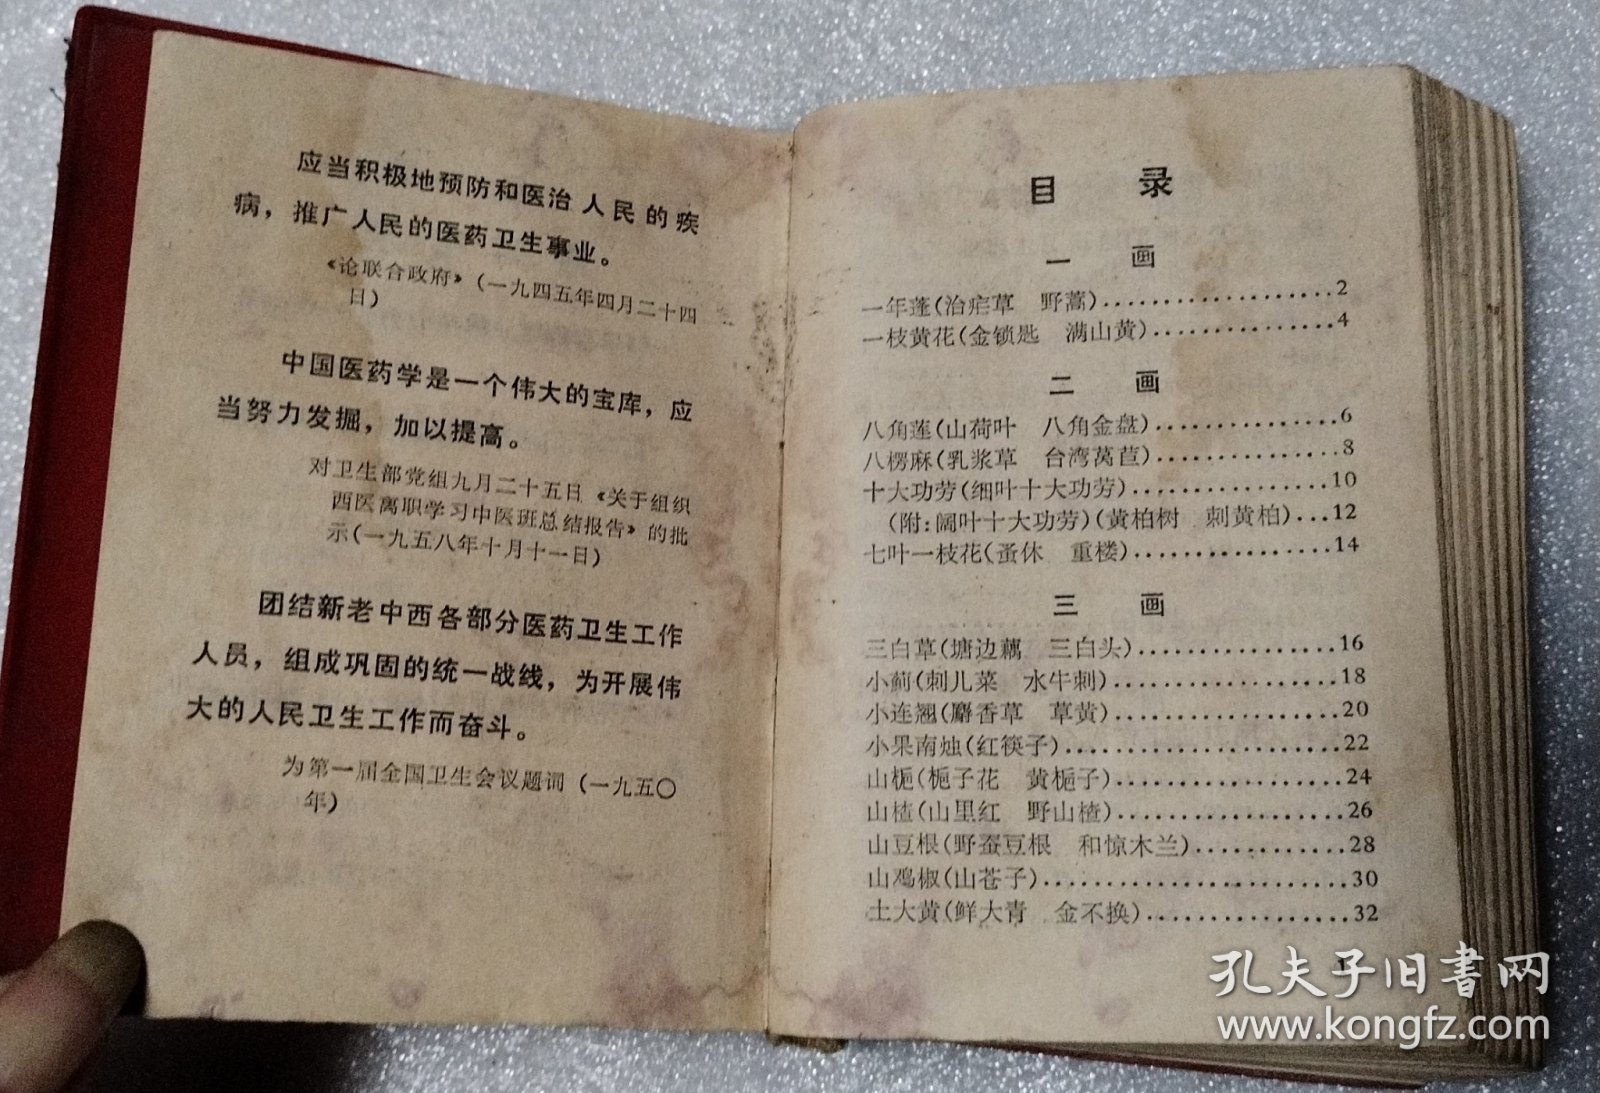 应当积极地预防和医治人民的疾
病，推广人民的医药卫生事业。
《论联合政府》（一九四五年四月二十四
日）
中国医药学是一个伟大的宝库，应
当努力发掘，加以提高。
对卫生部党组九月二十五日《关于组织
西医离职学习中医班总结报告》的批
示（一九五八年十月十一日）
团结新老中西各部分医药卫生工作
人员，组成巩固的统一战线，为开展伟
大的人民卫生工作而奋斗。
为第一届全国卫生会议题词（一九五〇
年）
目 录
一 画
一年蓬（治疟草 野蒿）…………………2
一枝黄花（金锁匙 满山黄）……………4
二 画
八角莲（山荷叶 八角金盘）……………6
八楞麻（乳浆草 台湾莴苣）……………8
十大功劳（细叶十大功劳）……………10
（附：阔叶十大功劳）（黄柏树 刺黄柏）…12
七叶一枝花（蚤休 重楼）……………14
三 画
三白草（塘边藕 三白头）……………16
小蓟（刺儿菜 水牛刺）………………18
小连翘（麝香草 草黄）………………20
小果南烛（红筷子）……………………22
山栀（栀子花 黄栀子）………………24
山楂（山里红 野山楂）………………26
山豆根（野蚕豆根 和惊木兰）…………28
山鸡椒（山苍子）………………………30
土大黄（鲜大青 金不换）……………32
1
孔夫子旧書网
www.kongfz.com